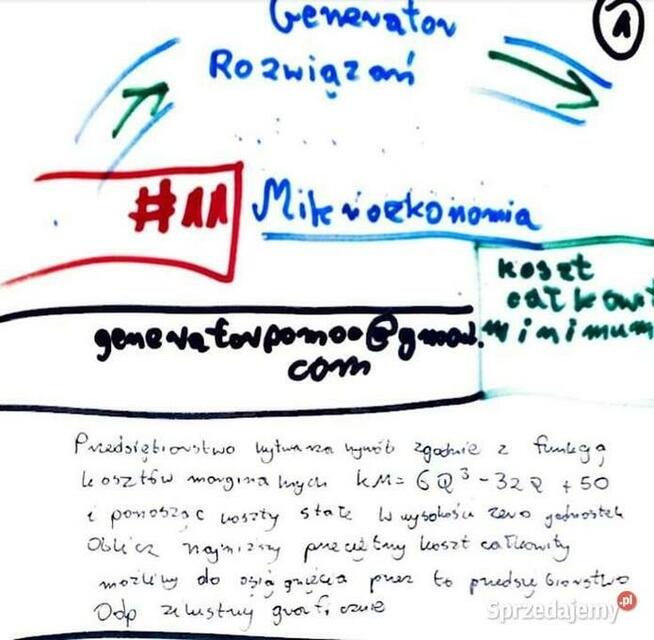 Generator
1
Rozwiązań
#11 Mikroekonomia
koszt
całkowit
minimum
generatorpomoc@gmail.
com
Przedsiębiorstwo wytwarza wyrób zgodnie z funkcją
kosztów marginalnych KM= 6Q³ - 32Q + 50
i ponosząc koszty stałe w wysokości zero jednostek
Oblicz najniższy przeciętny koszt całkowity
możliwy do osiągnięcia przez to przedsiębiorstwo
Odp zilustruj graficznie
Sprzedajemy.pl